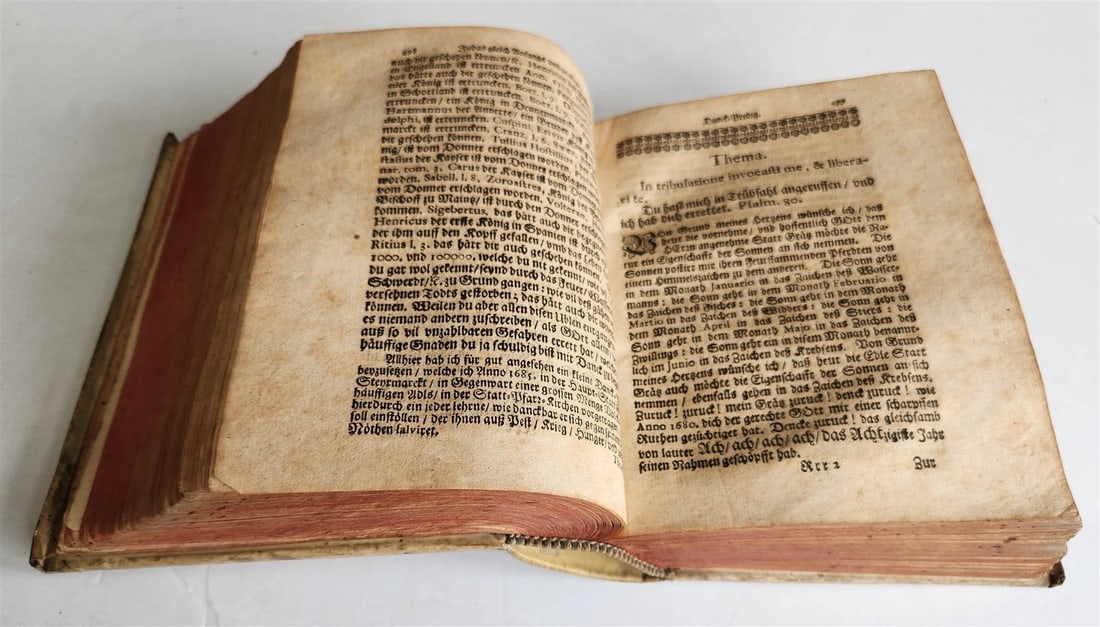 498 Judas gleich
auch dir geschehen können/ꝛc.
in Engelland ist ertruncken Ann.
das hätte auch dir geschehen können.
nier König ist ertruncken. Boet. l.
in Schottland ist ertruncken. Boet.
ertruncken/ ein König in Dennenmarck
Hartmannus der Anderte/ ein Bruder
dolphi, ist ertruncken. Cuspini, Ericus
marckt ist ertruncken. Cranz. l. 6.
dir geschehen können. Tullius Hostilius
nig/ ist vom Donner erschlagen worden.
stasius der Kayser ist vom Donner
nar. tom. 3. Carus der Kayser ist vom Donner
worden. Sabell. l. 8. Zoroastres, König der
vom Donner erschlagen worden. Volateran.
Bischoff zu Mayntz/ ist durch den Donner
kommen. Sigebertus, das hätt auch dir
Henricus der erste König in Spanien ist
der ihm auff den Kopff gefallen/ vmb das Leben
Ritius l. 3. das hätt dir auch geschehen können
1000. vnd 100000. welche du nit gekennt/
du gar wol gekennt/ seynd durch das Feuer/
Schwerdt/ꝛc. zu Grund gangen: wie vil deß gähen
versehnen Todts gestorben; das hätt auch dir
können. Weilen du aber allen disen Ublen entgangen
es niemand andern zuschreiben/ als GOtt
auß so vil vnzahlbaren Gefahren errett hat/
häuffige Gnaden du ja schuldig bist mit Danck
Allhier hab ich für gut angesehen ein kleine
beyzusetzen/ welche ich Anno 1685. in der Haupt-
Steyrmarckt/ in Gegenwart einer grossen Menge
häuffigen Adls/ in der Statt-Pfarr-Kirchen vorgetragen
hierdurch ein jeder lehrne/ wie danckbar er sich gegen
soll einstöllen/ der ihnen auß Pest/ Krieg/ Hunger/
Nöthen salviret.
Danck-Predig. 499
Thema.
In tribulatione invocasti me, & libera-
vi te.
Du hast mich in Trübsahl angeruffen/ vnd
ich hab dich errettet. Psalm. 80.
VOn Grund meines Hertzens wünsche ich/ daß
heut die vornehme/ vnd hoffentlich GOtt dem
HErrn angenehme Statt Grätz möchte die Na-
tur ein Eigenschafft der Sonnen an sich nemmen. Die
Sonnen postirt mit ihren Feurflammenden Pferdten von
einem Himmelszaichen zu dem anderen. Die Sonn geht
in dem Monath Januario in das Zaichen deß Wasser-
manns: die Sonn geht in dem Monath Februario in
das Zaichen deß Fisches: die Sonn geht in dem Monath
Martio in das Zaichen deß Widders: die Sonn geht in
dem Monath April in das Zaichen deß Stiers: die
Sonn geht in dem Monath Majo in das Zaichen deß
Zwillings: die Sonn geht ein in disem Monath benannt-
lich im Junio in das Zaichen deß Krebsens. Von Grund
meines Hertzens wünsche ich/ daß heut die Edle Statt
Grätz auch möchte die Eigenschafft der Sonnen an sich
nemmen/ ebenfalls gehen in das Zaichen deß Krebsens.
Zuruck! zuruck! mein Grätz zuruck! denck zuruck! wie
Anno 1680. dich der gerechte GOtt mit einer scharpffen
Ruthen gezüchtiget hat. Dencke zuruck! das gleichsamb
von lauter Ach/ ach/ ach/ ach/ das Achtzigiste Jahr
seinen Nahmen geschöpfft hab.
Rrr 2 Zur